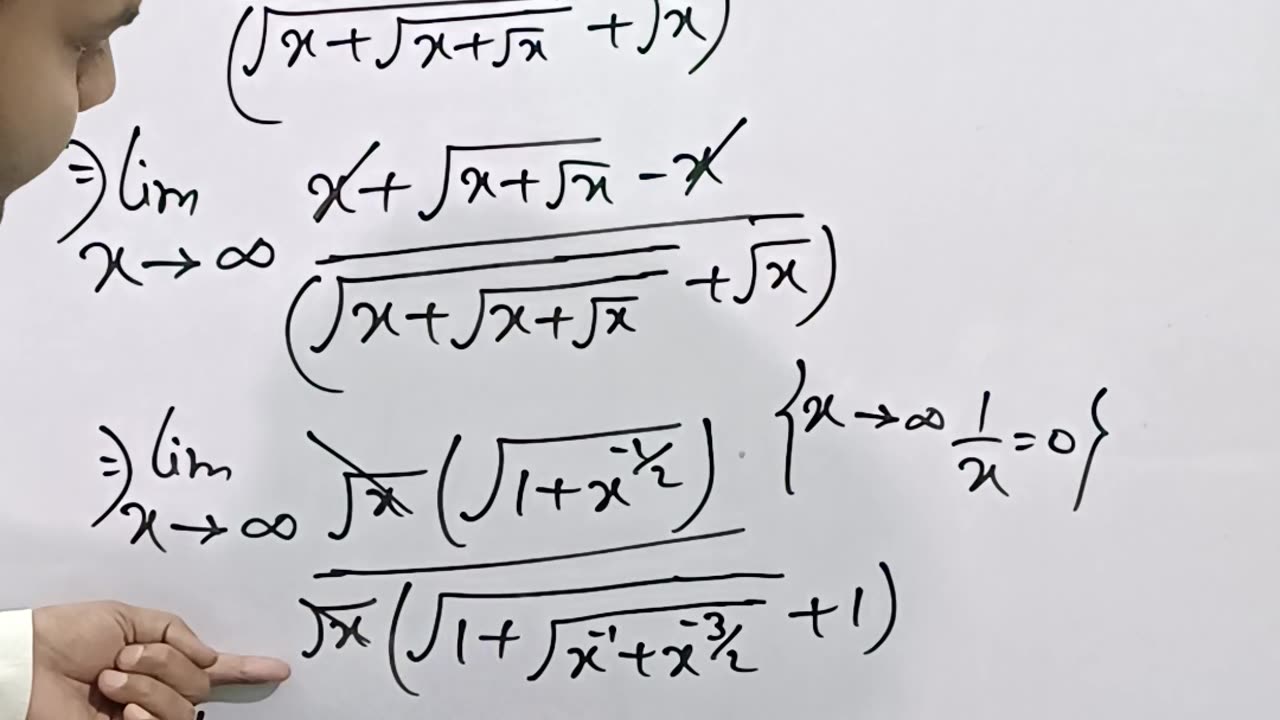 (√(x+√(x+√x)) + √x)
⇒ lim x→∞ (x + √(x+√x) - x) / (√(x+√(x+√x)) + √x)
⇒ lim x→∞ √x (√(1+x^(-1/2))) / √x (√(1+√(x^(-1)+x^(-3/2))) + 1) {x→∞ 1/x = 0}